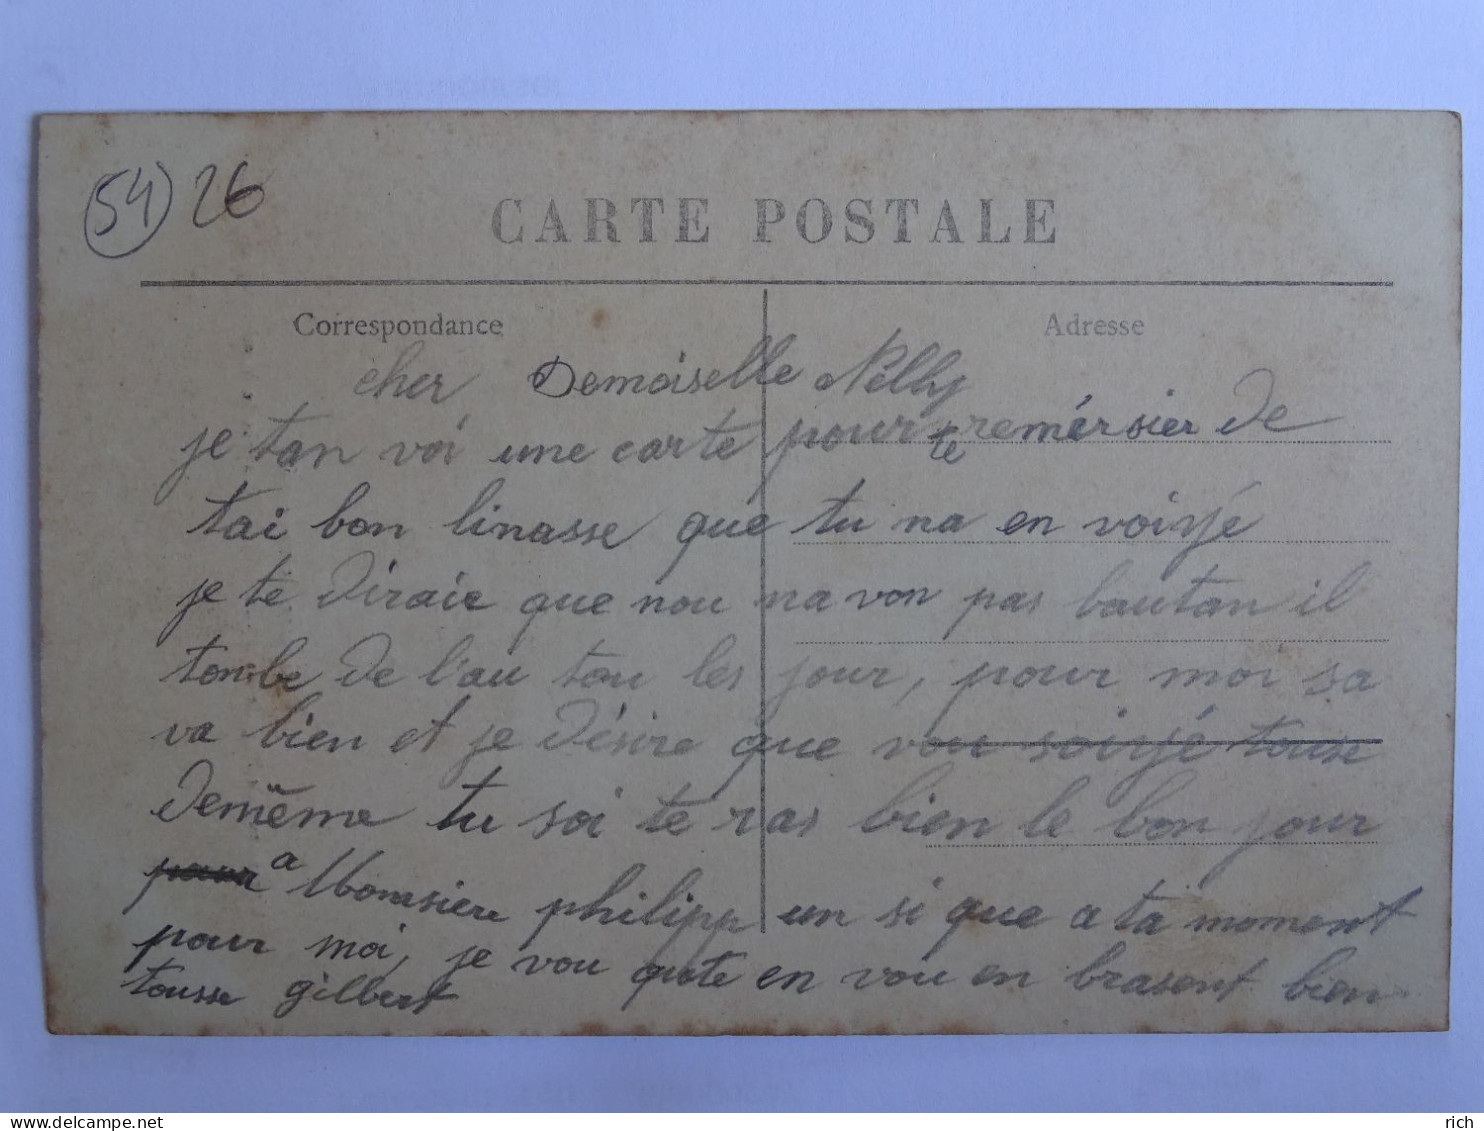 54 26
CARTE POSTALE
Correspondance
Adresse
cher Demoiselle Nelly
je tan voi une carte pour te remérsier de
tai bon linasse que tu na en voisjé
je te diraie que nou na von pas bautan il
tombe de l'au tou les jour, pour moi sa
va bien et je désire que vou soisjé tousse
demême tu soi te ras bien le bon jour
pour a Monsiere philipp un si que a ta moment
pour moi, je vou quite en vou en brasent bien
tousse gilbert
delcampe.net
rich